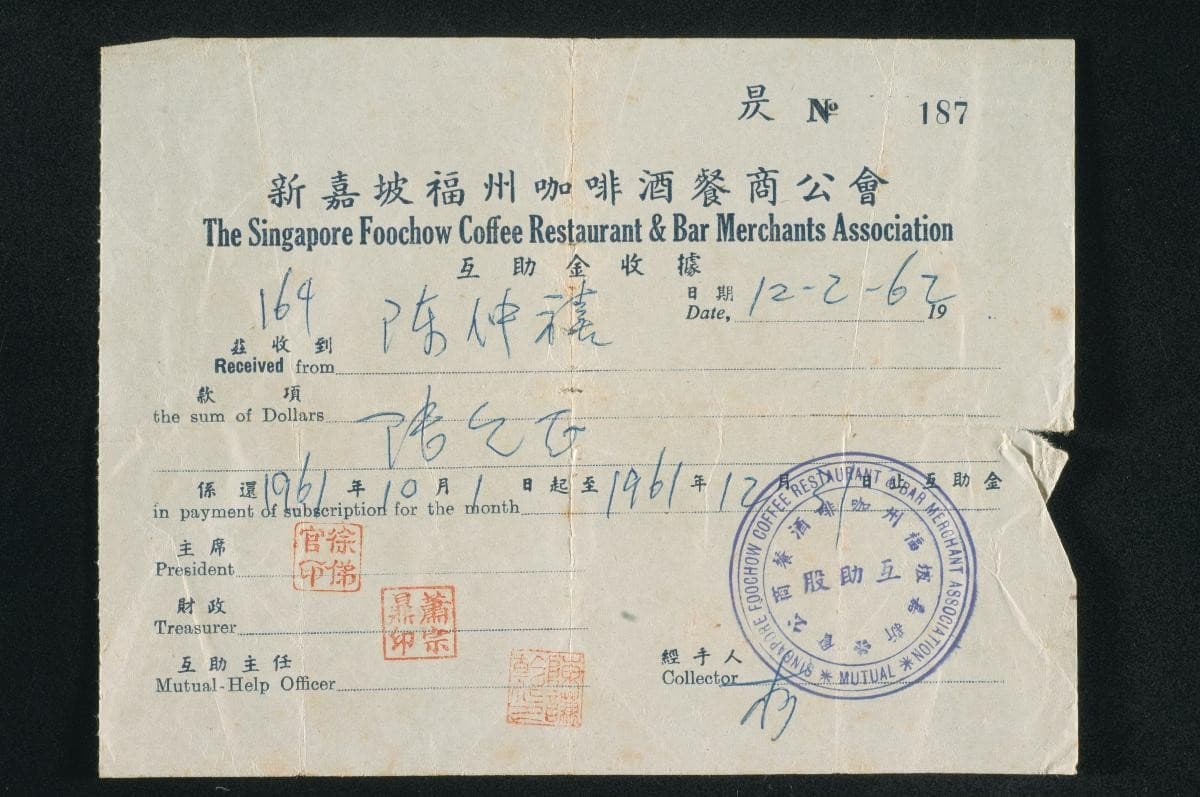 昃 № 187
新嘉坡福州咖啡酒餐商公會
The Singapore Foochow Coffee Restaurant & Bar Merchants Association
互助金收據
日期 12-2-62
Date, 19
164 陈仲禧
茲收到
Received from
款項
the sum of Dollars
係還 1961 年 10 月 1 日起至 1961 年 12 月 31 日止互助金
in payment of subscription for the month
主席
President
徐俤官印
財政
Treasurer
蕭宗鼎印
互助主任
Mutual-Help Officer
經手人
Collector
SINGAPORE FOOCHOW COFFEE RESTAURANT & BAR MERCHANT ASSOCIATION
* MUTUAL *
新嘉坡福州咖啡酒餐商公會
互助股